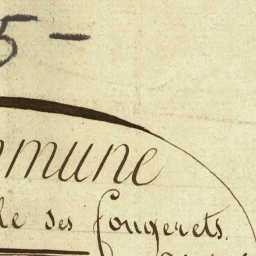 5 -
mmune
le des fougerets.